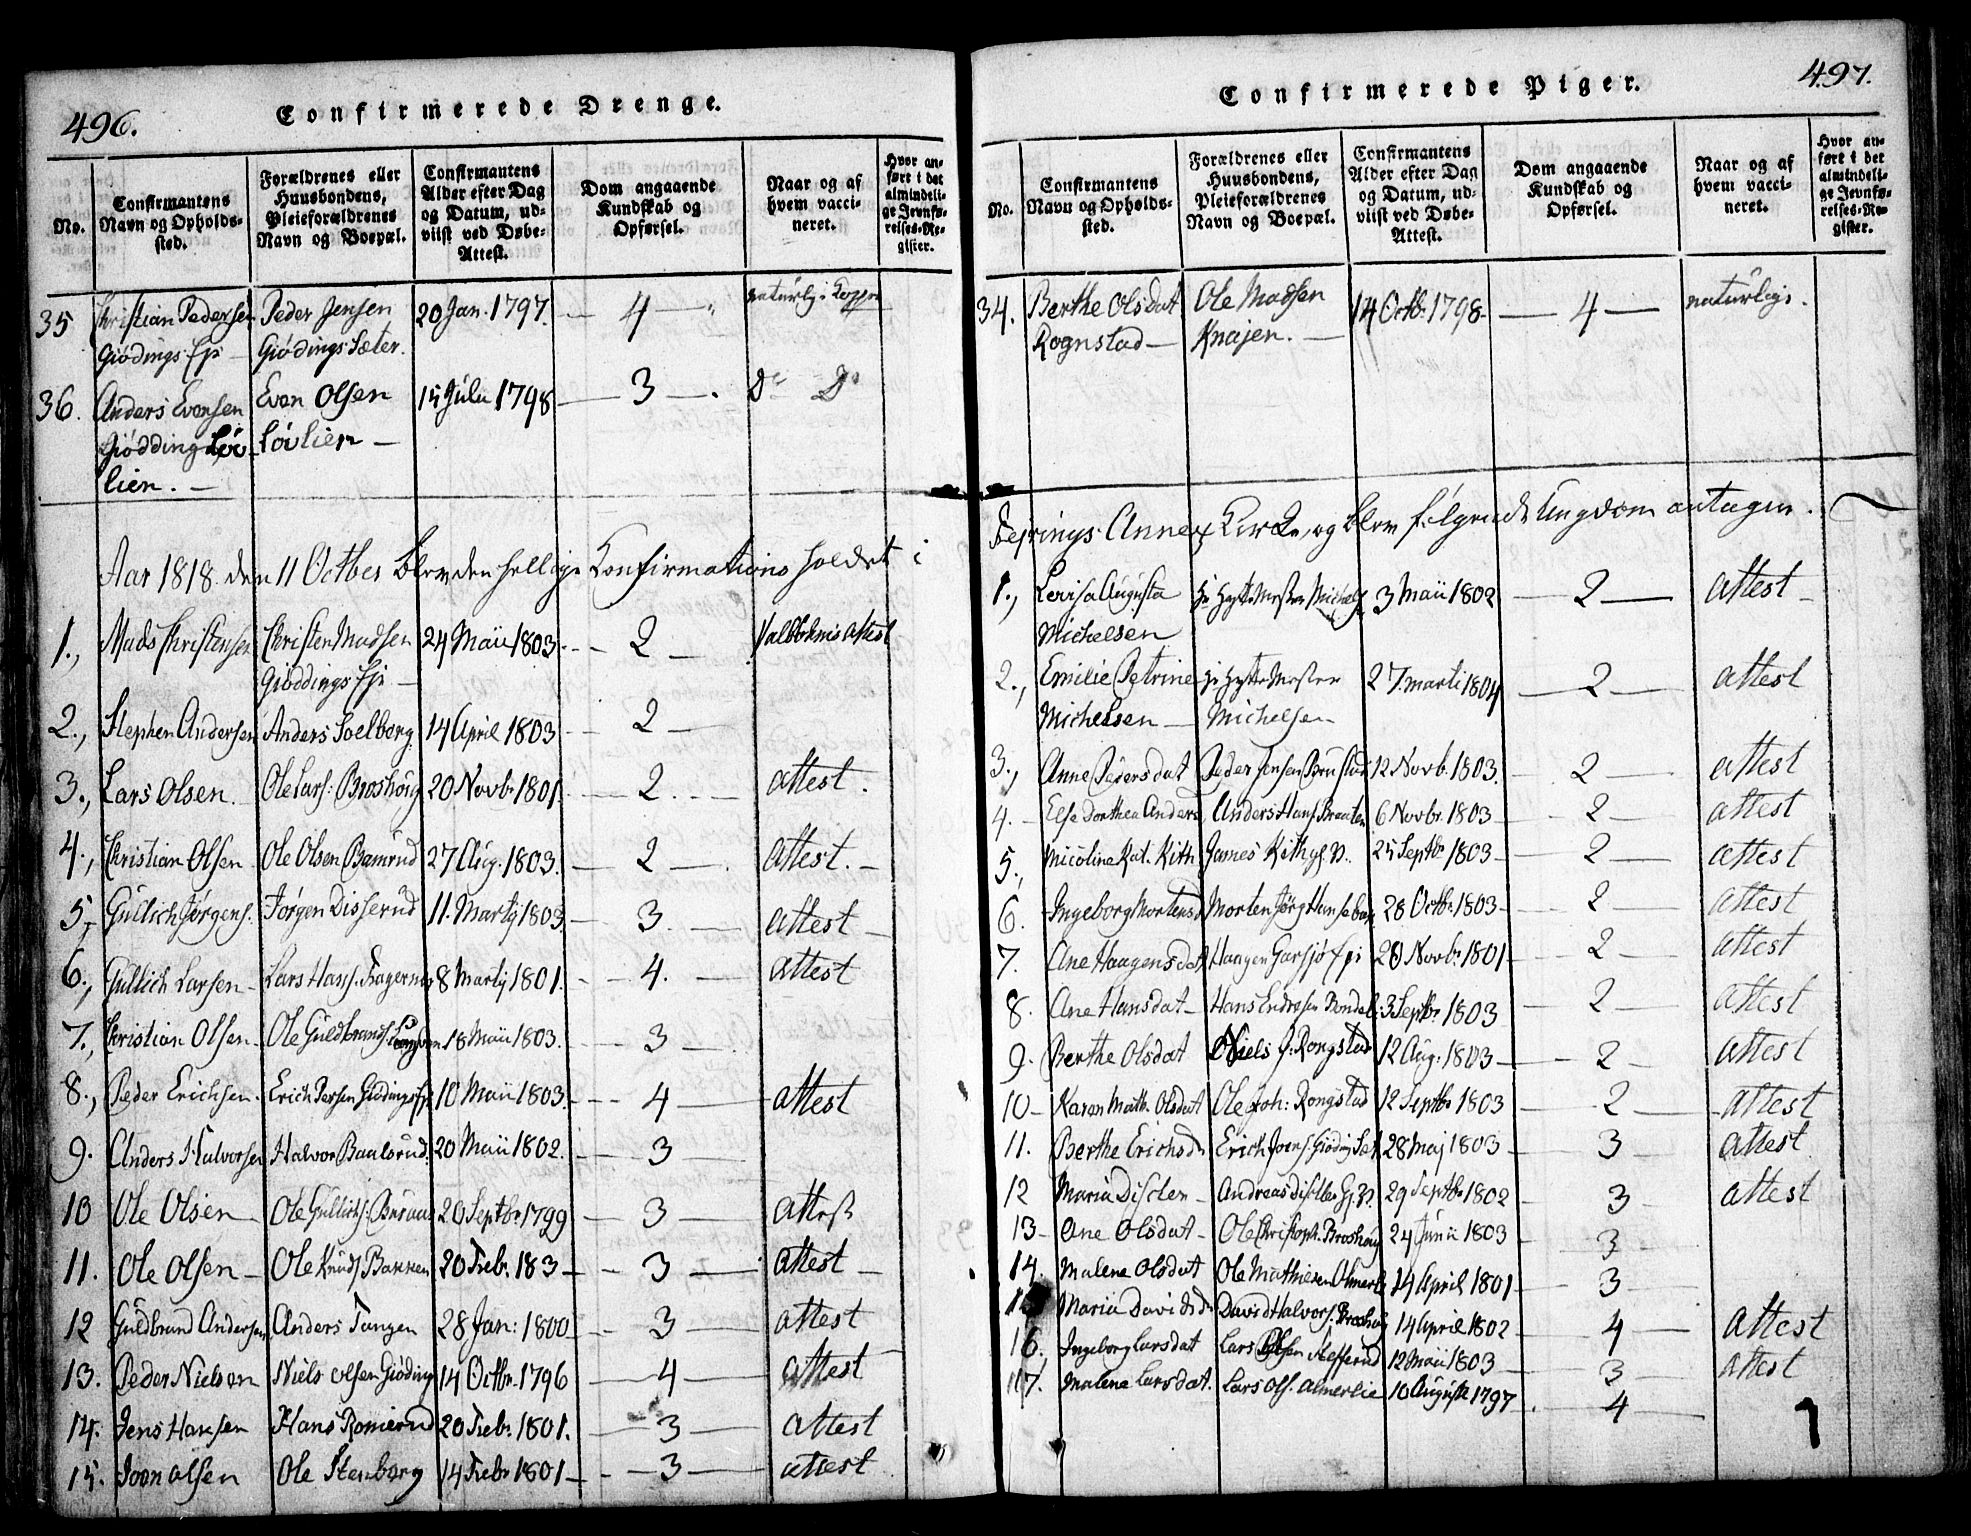 496.
Confirmerede Drenge.
No.
Confirmantens Navn og Opholdssted.
Forældrenes eller Huusbondens, Pleieforældrenes Navn og Boepæl.
Confirmantens Alder efter Dag og Datum, udviist ved Døbe-Attest.
Dom angaaende Kundskab og Opførsel.
Naar og af hvem vaccineret.
Hvor anført i det almindelige Jevnførelses-Register.
35 Christian Pedersen Peder Jensen 20 Jan. 1797. 4 naturlige
Giødings Giødings Sæter.
36. Anders Evensen Even Olsen 15 Julii 1798 3 Do Do
Giødding Løv Løvlien
lien.
Aar 1818 den 11 Octber blev den hellige Confirmations holdet i
1., Mads Christensen Christen Madsen 24 Maii 1803 2 attest
Giøddings
2., Stephen Andersen Anders Soelberg 14 April 1803 2
3., Lars Olsen. Ole Lars: 20 Novbr 1801. 2. attest.
4., Christian Olsen Ole Olsen 27 Aug. 1803. 2 attest.
5, Gullich Jørgens. Jørgen Disserud 11. Martij 1803 3. attest
6., Gullich Larsen Lars Hans. 8 Martij 1801. 4. attest
7., Christian Olsen Ole Guldbrands. 18 Maii 1803. 3
8., Peder Erichsen. Erich 10 Maii 1803. 4 attest
9. Anders Halvorsen Halvor 20 Maii 1802. 3
10 Ole Olsen Ole Gullichs. 20 Septbr 1799 3 attest
11. Ole Olsen Ole Knuds. Bakken 20 Febr. 183 3 attest
12 Guldbrand Andersen Anders Tangen 28 Jan: 1800 3 attest
13. Peder Nielsen Niels Olsen Giøding 14 Octbr. 1796 4 attest
14. Jens Hansen Hans Romerud 20 Febr. 1801. 3 attest
15. Joen Olsen Ole Stenberg 14 Febr 1801 3 attest
497.
Confirmerede Piger.
No.
Confirmantens Navn og Opholdssted.
Forældrenes eller Huusbondens, Pleieforældrenes Navn og Boepæl.
Confirmantens Alder efter Dag og Datum, udviist ved Døbe-Attest.
Dom angaaende Kundskab og Opførsel.
Naar og af hvem vaccineret.
Hvor anført i det almindelige Jevnførelses-Register.
34. Berthe Olsdat Ole Madsen 14 Octb. 1798 4 naturlige.
Rognstad Knajen.
Annex Kirke, og blev følgende Ungdom antagen.
1., Lovisa Augusta Hr Hytte Mester Michels 3 Maii 1802 2 attest
Michelsen
2., Emilie Petrine Hr Hytte Mester 27. marti 1804 2 attest
Michelsen Michelsen
3., Anne Pedersdat Peder Jensen 12 Novb. 1803. 2 attest
4. Else Dorthea Anders Anders Hans. Braaten 6 Novbr. 1803 2 attest
5., Nicoline Kat. Kith James Kith 25 Septbr 1803 2 attest
6. Ingeborg Mortensd Morten Jørg 28 Octbr. 1803 2 attest
7. Ane Haagensdat Haagen Garsjø 20 Novbr 1801 2 attest
8. Ane Hansdat Hans Endresen 3 Septbr. 1803 2 attest
9. Berthe Olsdat Niels J. Rongstad 12 Aug. 1803 2 attest
10 Karen Math. Olsdat Ole Joh: Rongstad 12 Septbr 1803 2 attest
11. Berthe Erichsd Erich Joens. Giøding Sæt 28 Maj 1803 3 attest
12 Maria Discten Andreas 29 Septbr 1802 3 attest
13 Ane Olsdat Ole Christoph. 24 Junii 1803 3
14. Malene Olsdat Ole Mathiesen 14 April 1801 3
Maria Davidsd David Halvors. 14 April 1802 4 attest
16. Ingeborg Larsdat Lars Olsen 12 Maii 1803 3 attest
17. Malene Larsdat. Lars Ols. Almerlie 10 August 1797 4